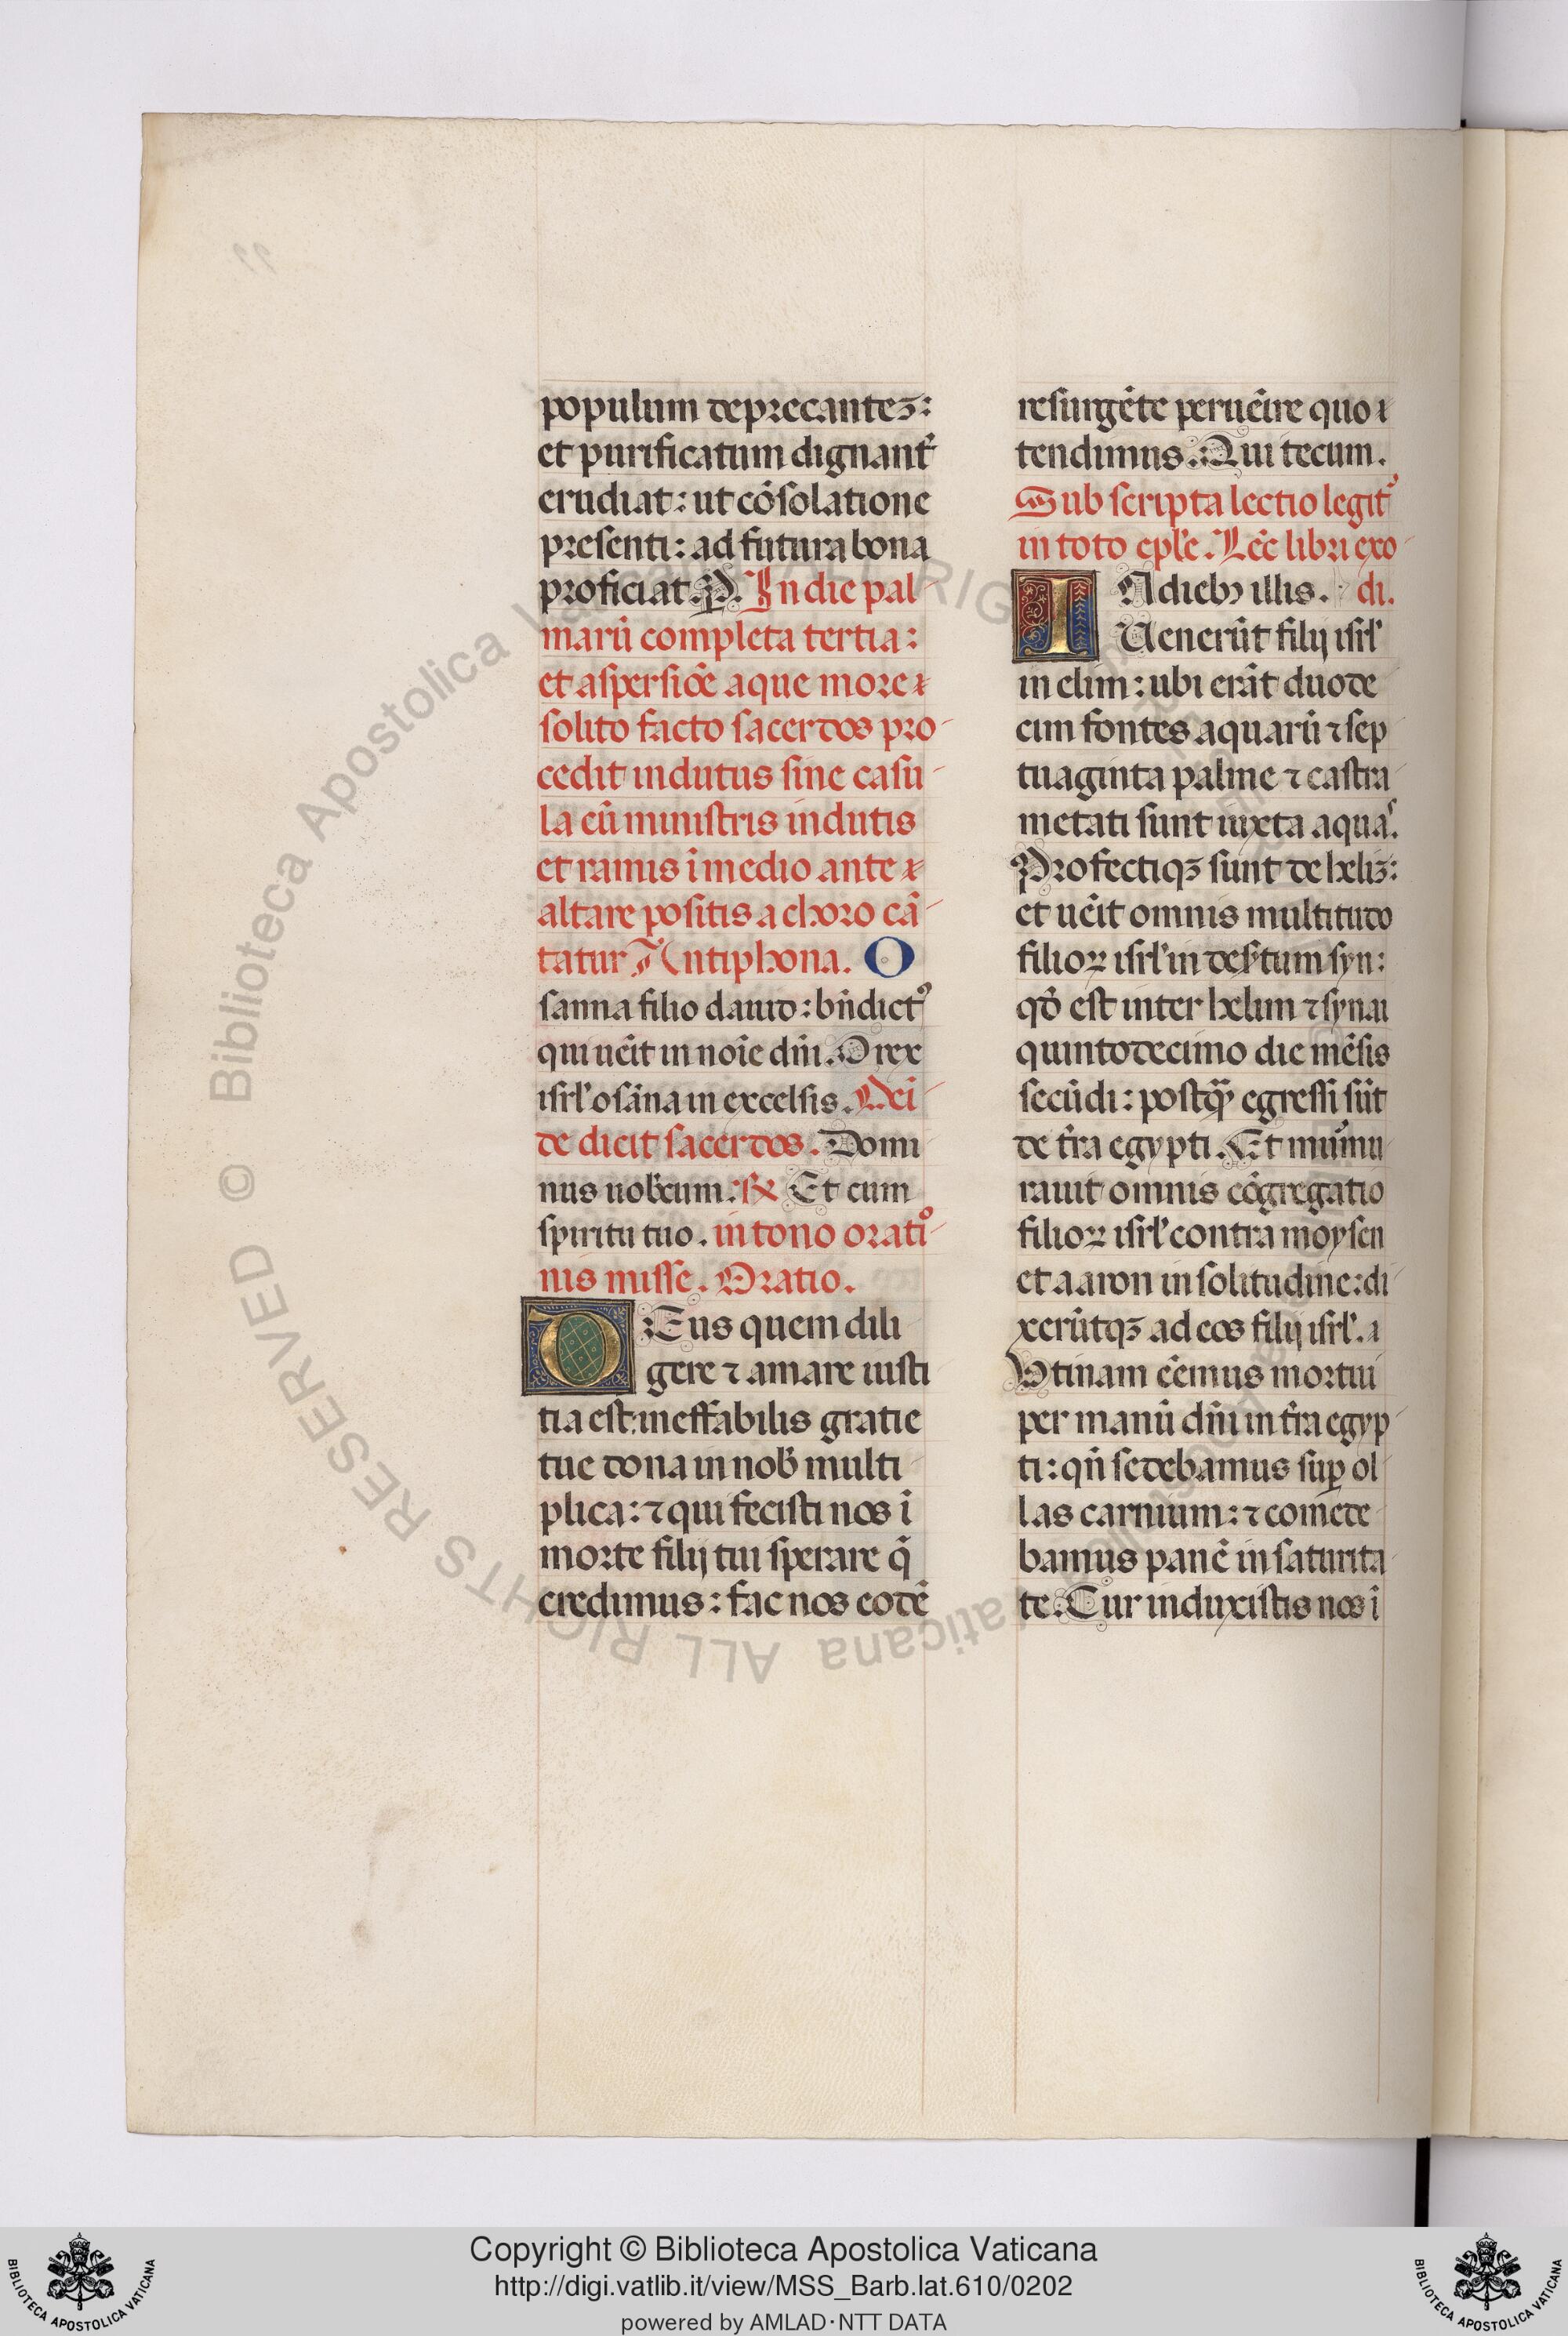 populum deprecantez:
et purificatum dignant᷑
erudiat: ut cōsolatione
presenti: ad futura bona
proficiat. P̲. In die pal-
marū completa tertia:
et aspersiōe aque more
solito facto sacerdos pro-
cedit indutus sine casu-
la cū ministris indutis
et ramis ī medio ante
altare positis a choro cā-
tatur Antiphona. O
sanna filio dauid: bn̄dictꝰ
qui uēit in noīe dn̄i. O rex
isrl̓ osāna in excelsis. Deī-
de dicit sacerdos. Domi-
nus uob̓cum. ℟ Et cum
spiritu tuo. in tono oratio-
nis misse. Oratio.
DEus quem dili
gere ⁊ amare iusti
tia est: ineffabilis gratie
tue dona in nob̓ multi-
plica: ⁊ qui fecisti nos ī
morte filij tui sperare q̄
credimus: fac nos eodē
resurgēte peruēire quo
tendimus. Qui tecum.
Sub scripta lectio legitᷣ
in toto eple. Lēc libri exo-
IN dieb; illis. di.
Uenerūt filij isrl̓
in elim: ubi erāt duode
cim fontes aquarū ⁊ sep-
tuaginta palme ⁊ castra-
metati sunt iuxta aquas.
Profectiqꝫ sunt de heliz:
et uēit omnis multitudo
filioꝝ isrl̓ in desertum syn:
qd̄ est inter helim ⁊ synai
quintodecimo die mēsis
secūdi: postqꝫ egressi sūt
de t̄ra egypti. Et murmu-
rauit omnis cōgregatio
filioꝝ isrl̓ contra moysen
et aaron in solitudine: di-
xerūtqꝫ ad eos filij isrl̓.
Vtinam eēmus mortui
per manū dn̄i in t̄ra egyp-
ti: qn̄ sedebamus sup̱ ol-
las carnium: ⁊ comede-
bamus panē in saturita-
te. Cur induxistis nos ī
© Biblioteca Apostolica Vaticana ALL RIGHTS RESERVED
Copyright © Biblioteca Apostolica Vaticana
http://digi.vatlib.it/view/MSS_Barb.lat.610/0202
powered by AMLAD·NTT DATA
BIBLIOTECA APOSTOLICA VATICANA
BIBLIOTECA APOSTOLICA VATICANA